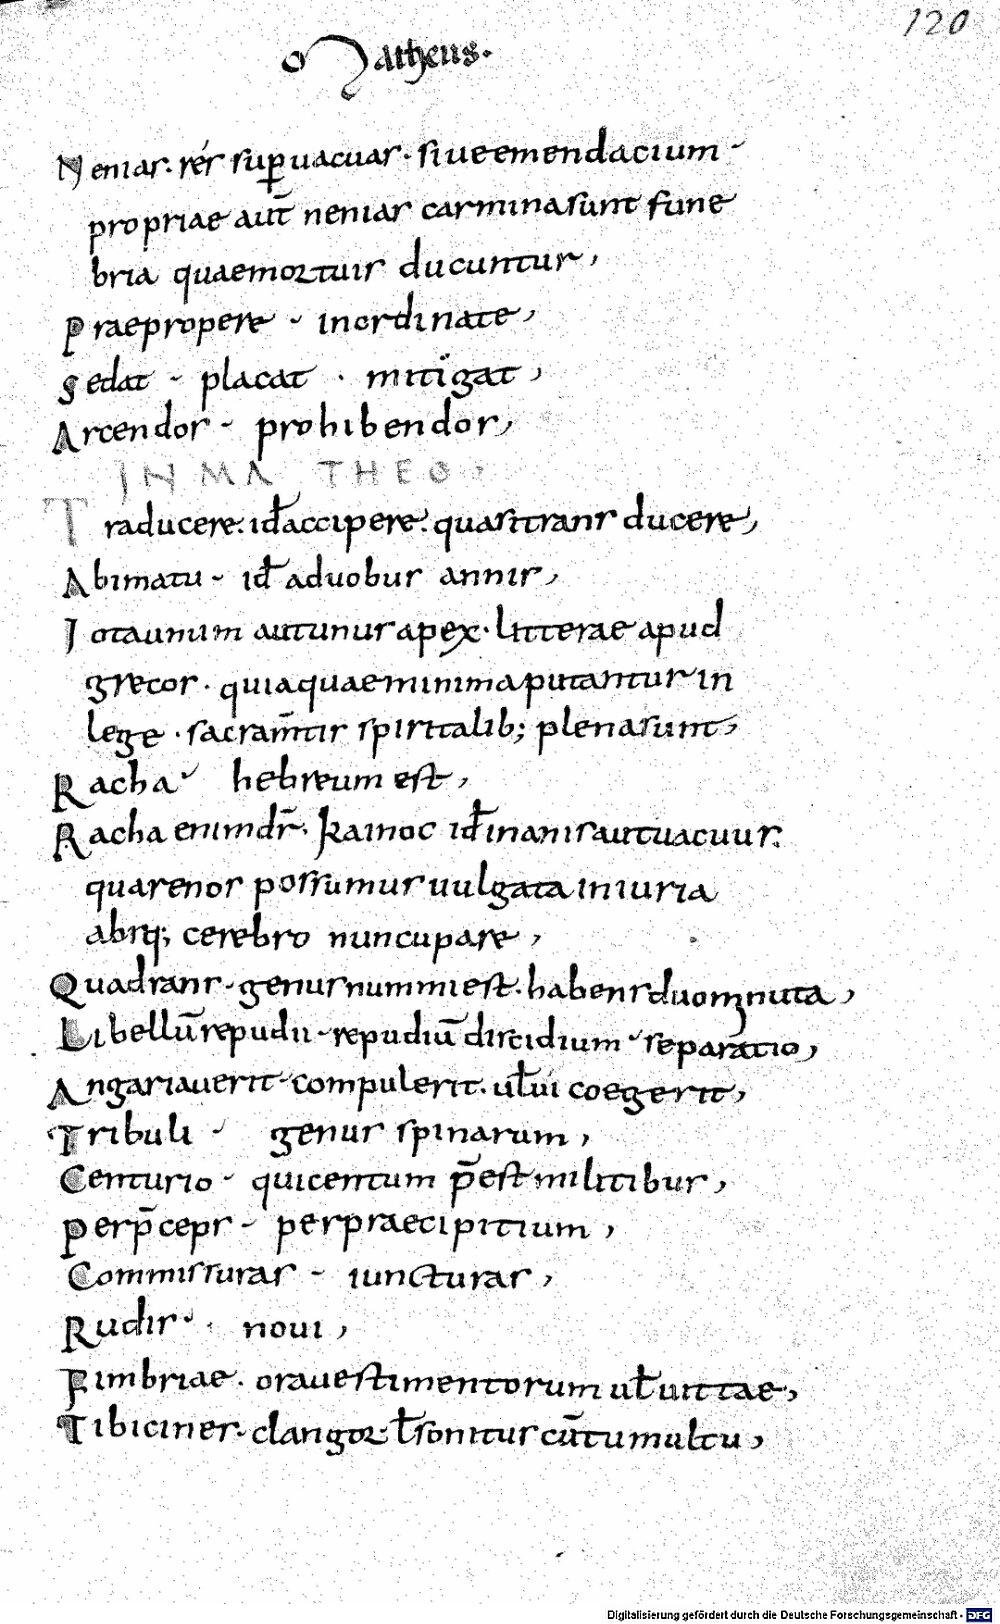 120
Matheus.
Nenias. res sup̲uacuas. siue emendacium
propriae aut̄ nenias carmina sunt fune
bria quae mortuis ducuntur,
Praepropere - inordinate,
Sedat - placat . mitigat,
Arcendos - prohibendos,
IN MATHEO
Traducere. id̄ accipere. quasi trans ducere,
A bimatu - id̄ a duobus annis,
Iota unum aut unus apex. litterae apud
grecos. quia quae minima putantur in
lege. sacram̄tis spiritalib; plena sunt,
Racha hebreum est,
Racha enim dr̄. kainoc id̄ inanis aut uacuus.
quare nos possumus uulgata iniuria
absq; cerebro nuncupare,
Quadrans - genus nummi est. habens duo minuta,
Libellū repudii - repudiū discidium - separatio,
Angariauerit - compulerit. ul̄ ui coegerit,
Tribuli - genus spinarum,
Centurio - qui centum p̄est militibus,
Per p̄ceps - per praecipitium,
Commissuras - iuncturas,
Rudis. noui,
Fimbriae. ora uestimentorum ul̄ uittae,
Tibicines. clangor. l̄ sonitus cū tumultu,
Digitalisierung gefördert durch die Deutsche Forschungsgemeinschaft - DFG